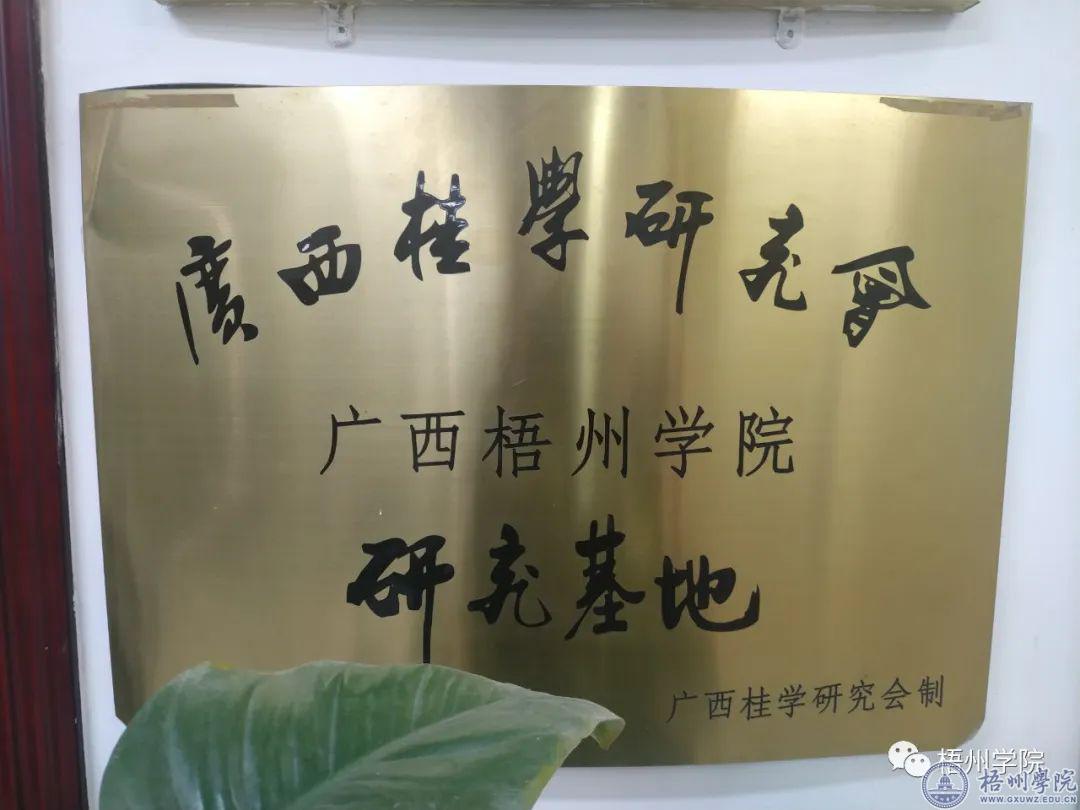 廣西桂學研究會
广西梧州学院
研究基地
广西桂学研究会制
梧州学院
梧州學院
WWW.GXUWZ.EDU.CN